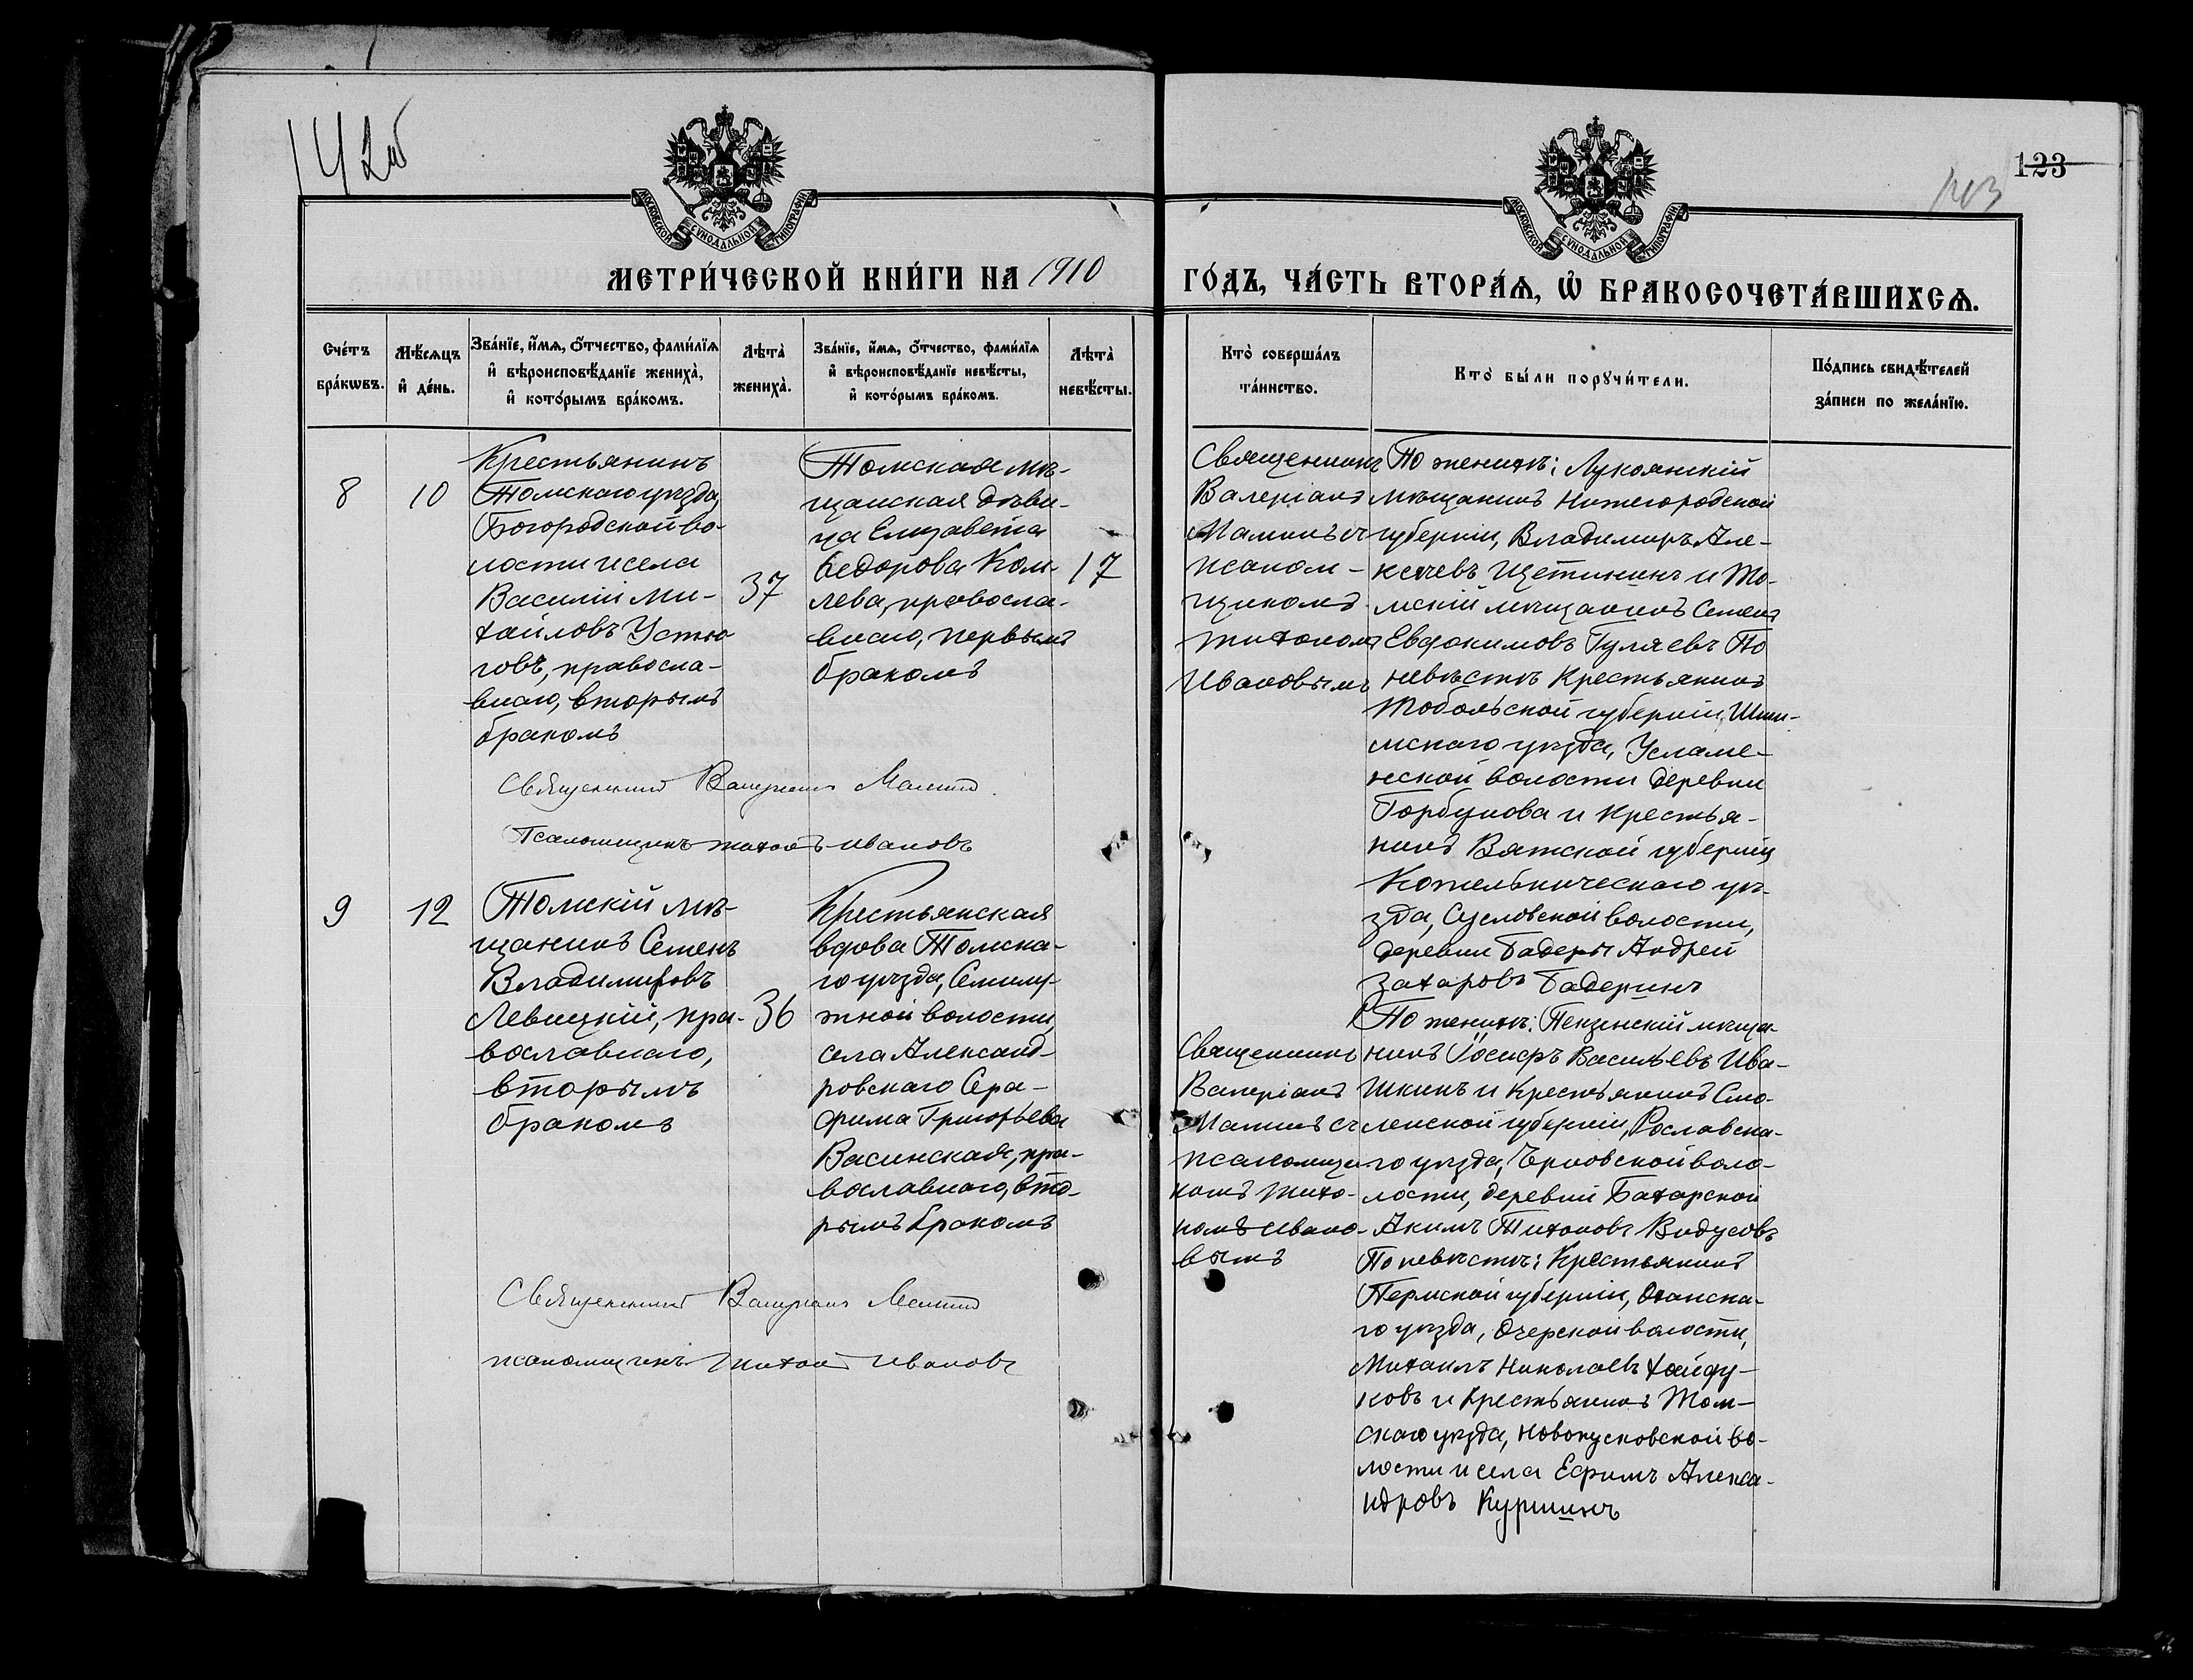 142об
123
143
МОСКОВСКОЙ СУНОДАЛЬНОЙ ТИПОГРАФІИ
МОСКОВСКОЙ СУНОДАЛЬНОЙ ТИПОГРАФІИ
МЕТРИ́ЧЕСКОЙ КНИ́ГИ НА 1910
ГО́ДЪ, ЧА́СТЬ ВТОРА́Ѧ, Ѽ БРАКОСОЧЕТА́ВШИХСѦ.
Сче́тъ
бра́кѡвъ.
Мѣ́сѧцъ
и҆ де́нь.
Зва́нїе, и҆́мѧ, ѻ҆́тчество, фамѝлїѧ
и҆ вѣроисповѣ́данїе жениха̀,
и҆ кото́рымъ бра́комъ.
Лѣта̀
жениха̀.
Зва́нїе, и҆́мѧ, ѻ҆́тчество, фамѝлїѧ
и҆ вѣроисповѣ́данїе невѣ́сты,
и҆ кото́рымъ бра́комъ.
Лѣта̀
невѣ́сты.
Кто̀ соверша́лъ
та́инство.
Кто̀ бы́ли порꙋчи́тели.
По́дпись свидѣ́телей
за́писи по жела́нїю.
8
10
Крестьянинъ
Томскаго уѣзда,
Богородской во-
лости и села
Василій Ми-
хайловъ Устю
говъ, правосла-
внаго, вторымъ
бракомъ
37
Томская мѣ-
щанская дѣви-
ца Елизавета
Ѳедорова Ком-
лева, правосла-
внаго, первымъ
бракомъ
17
Священникъ
Валеріанъ
Маминъ съ
псалом-
щикомъ
Тихономъ
Ивановымъ
По женихѣ: Лукоянскій
мѣщанинъ Нижегородской
губерніи, Владимиръ Але-
ксѣевъ Щетининъ и То-
мскій мѣщанинъ Семенъ
Евдокимовъ Гуляевъ По
невѣстѣ Крестьянинъ
Тобольской губерніи, Иши-
мскаго уѣзда, Усламе-
нской волости деревни
Горбунова и Крестья-
нинъ Вятской губерніи
Котельническаго уѣ-
зда, Сусловской волости,
деревни Бадеры Андрей
Захаровъ Бадеринъ
Священникъ Валеріанъ Маминъ.
Псаломщикъ Тихонъ Ивановъ
9
12
Томскій мѣ-
щанинъ Семенъ
Владимировъ
Левицкій, пра-
вославнаго,
вторымъ
бракомъ
36
Крестьянская
вдова Томска-
го уѣзда, Семилу-
жной волости,
села Александ-
ровскаго Сера-
фима Григорьева
Васинская, пра-
вославнаго, вто-
рымъ бракомъ
Священникъ
Валеріанъ
Маминъ съ
псаломщи-
комъ Тихо-
номъ Ивано-
вымъ
По женихѣ: Пензенскій мѣща-
нинъ Іосифъ Васильевъ Ива-
шкинъ и Крестьянинъ Смо-
ленской губерніи, Рославска-
го уѣзда, воло-
лости, деревни Бахарской
Акимъ Тихоновъ Видусовъ
По невѣстѣ: Крестьянинъ
Пермской губерніи, Оханска-
го уѣзда, Очерской волости,
Михаилъ Николаевъ Хайду-
ковъ и Крестьянинъ Том-
скаго уѣзда, Новокусковской во-
лости и села Ефимъ Алекса-
ндровъ Куршинъ
Священникъ Валеріанъ Маминъ
псаломщикъ Тихонъ Ивановъ